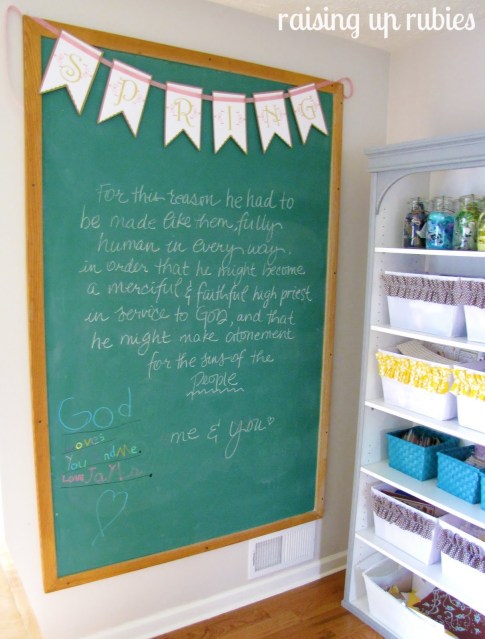 raising up rubies
SPRING
For this reason he had to
be made like them, fully
human in every way,
in order that he might become
a merciful & faithful high priest
in service to God, and that
he might make atonement
for the sins of the
people
me & you
God
Loves
You andMe.